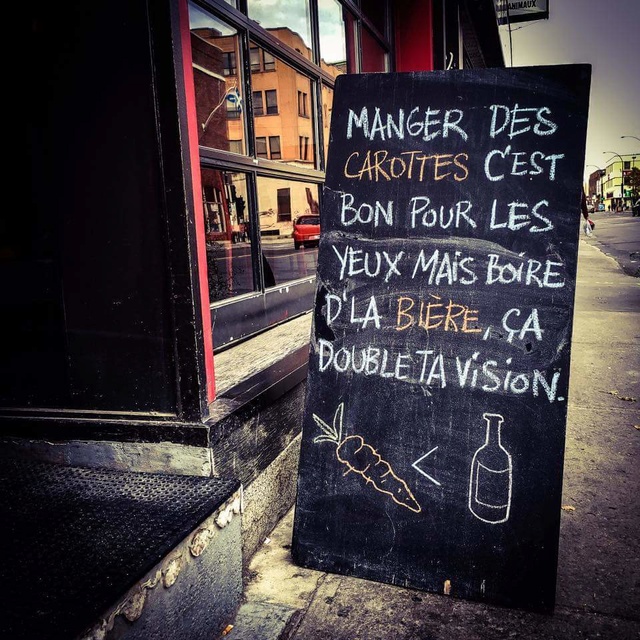 ANIMAUX
MANGER DES
CAROTTES C'EST
BON POUR LES
YEUX MAIS BOIRE
D'LA BIÈRE, ÇA
DOUBLE TA VISION.
<